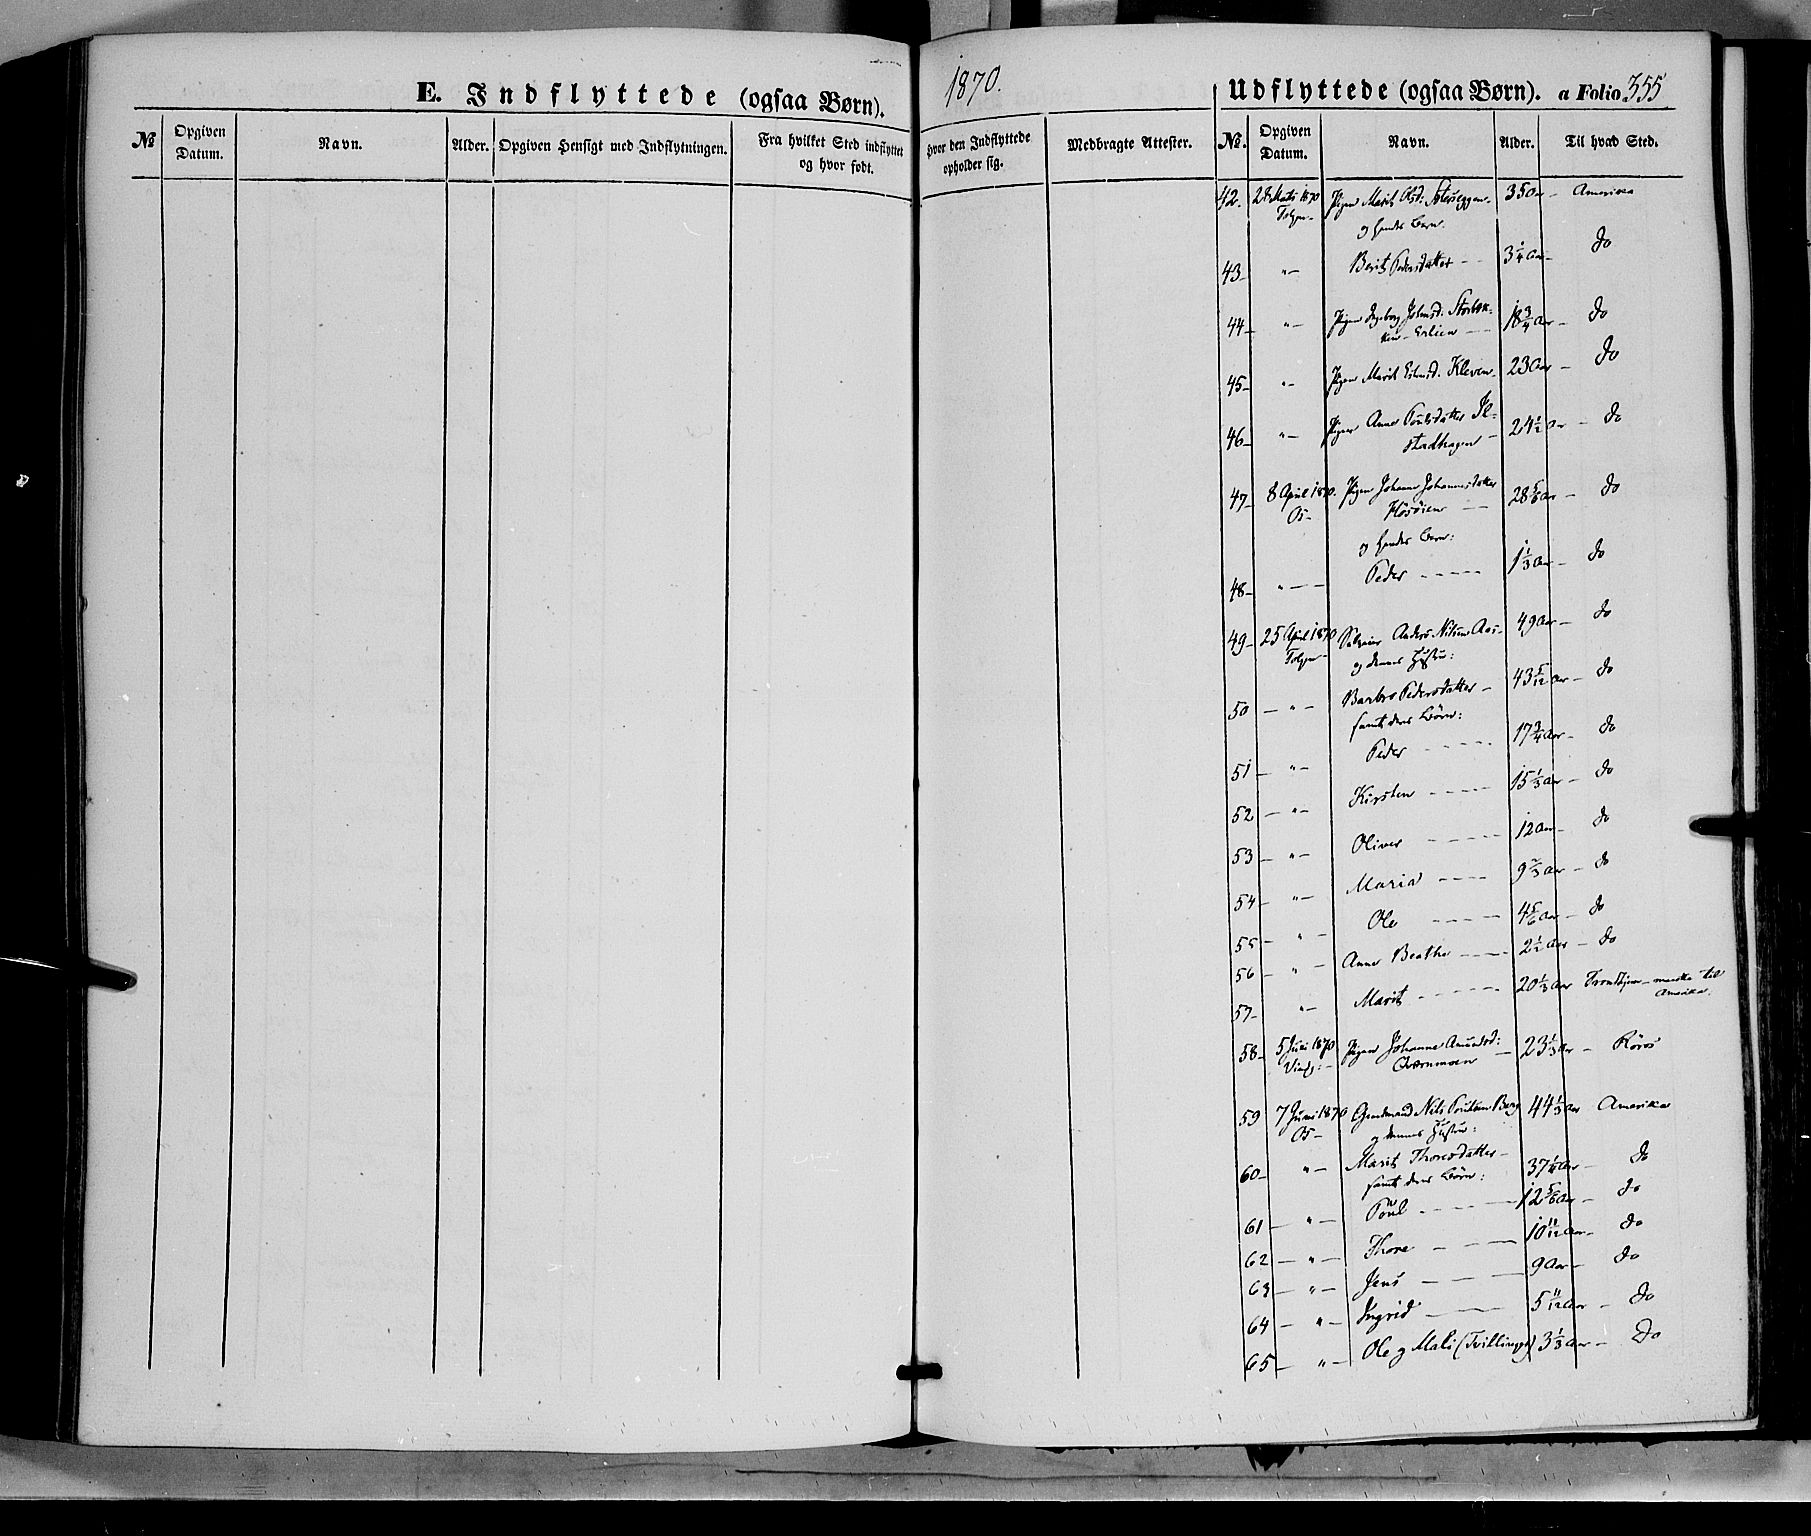 E. Indflyttede (ogsaa Børn).
1870.
Udflyttede (ogsaa Børn). a Folio 355
№
Opgiven Datum.
Navn.
Alder.
Opgiven Hensigt med Indflytningen.
Fra hvilket Sted indflyttet og hvor født.
Hvor den Indflyttede opholder sig.
Medbragte Attester.
№.
Opgiven Datum.
Navn.
Alder.
Til hvad Sted.
42. 1870 Pigen Marit Olsd: 35 Aar - Amerika
Tolgen - og hendes Barn.
43 - " - Berit Pedersdatter - - 3 1/4 Aar - do
44 - " - Pigen Ingeborg Johnsd: 18 3/4 Aar - do
Erlien - -
45 - " - Pigen Marit Estensd. Kleven - 23 Aar - do
46 - " - Pigen Anne Poulsdatter 24 1/2 Aar - do
47 - 8 April 1870. Pigen Johanne Johannesdatter 28 5/6 Aar - do
Os -
og hendes Barn:
48 - " - - Peder - - - - 1 1/3 Aar - do
49 - 25 April 1870 Anders Nilsen Aas - 49 Aar - do
Tolgen - og dennes Hustru:
50 - " - Barbro Pedersdatter - 43 5/12 Aar - do
samt deres Börn:
51 - " - Peder - - - - 17 3/4 Aar - do
52 - " - Kirsten - - - - 15 1/3 Aar - do
53 - " - Oliver - - - - 12 Aar - do
54 - " - Maria - - - - 9 2/3 Aar - do
55 - " - Ole - - - - 4 5/6 Aar - do
56 - " - Anne Beathe - - - 2 1/2 Aar - do
57 - " - Marit - - - - 20 1/3 Aar Trondhjem - maaske til
Amerika.
58 - 5 Juni 1870 Pigen Johanne Amundsd: 23 1/3 Aar - Röros
Vingl: - Qvernmoen -
59 7 Juni 1870 Gaardmand Nils Poulsen Berg 44 1/3 Aar Amerika
Os - og dennes Hustru:
60 - " - Marit Thoresdatter - 37 1/4 Aar - do
samt deres Börn:
61 - " - Poul - - - - 12 5/6 Aar - do
62 - " - Thore - - - - 10 11/12 Aar - do
63 - " - Jens - - - 9 Aar - do
64 - " - Ingrid - - - - 5 11/12 Aar - do
65 - " - Ole og Mali (Tvillinger) 3 1/3 Aar - do